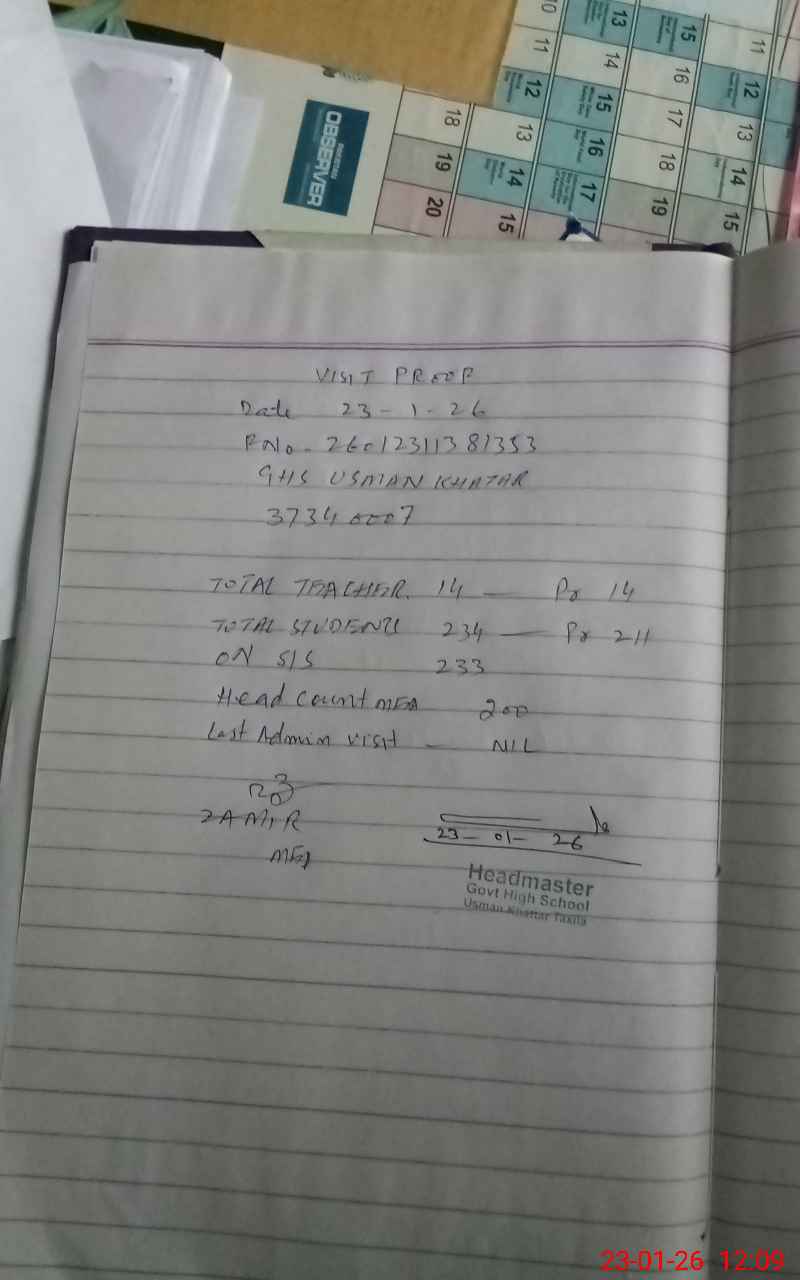 PAKISTAN
OBSERVER
10
11
12
13
14
15
13
14
15
16
17
15
16
17
18
19
11
12
13
14
15
18
19
20
VISIT PROOF
Date 23-1-26
FNo. 26012311381353
GHS USMAN KHATAR
37340007
TOTAL TEACHER. 14 — Pr 14
TOTAL STUDENTS 234 — Pr 211
ON SIS 233
Head Count MEA 200
Last Admin visit — NIL
ZAMIR
MEA
23-01-26
Headmaster
Govt High School
Usman Khattar Taxila
23-01-26 12:09